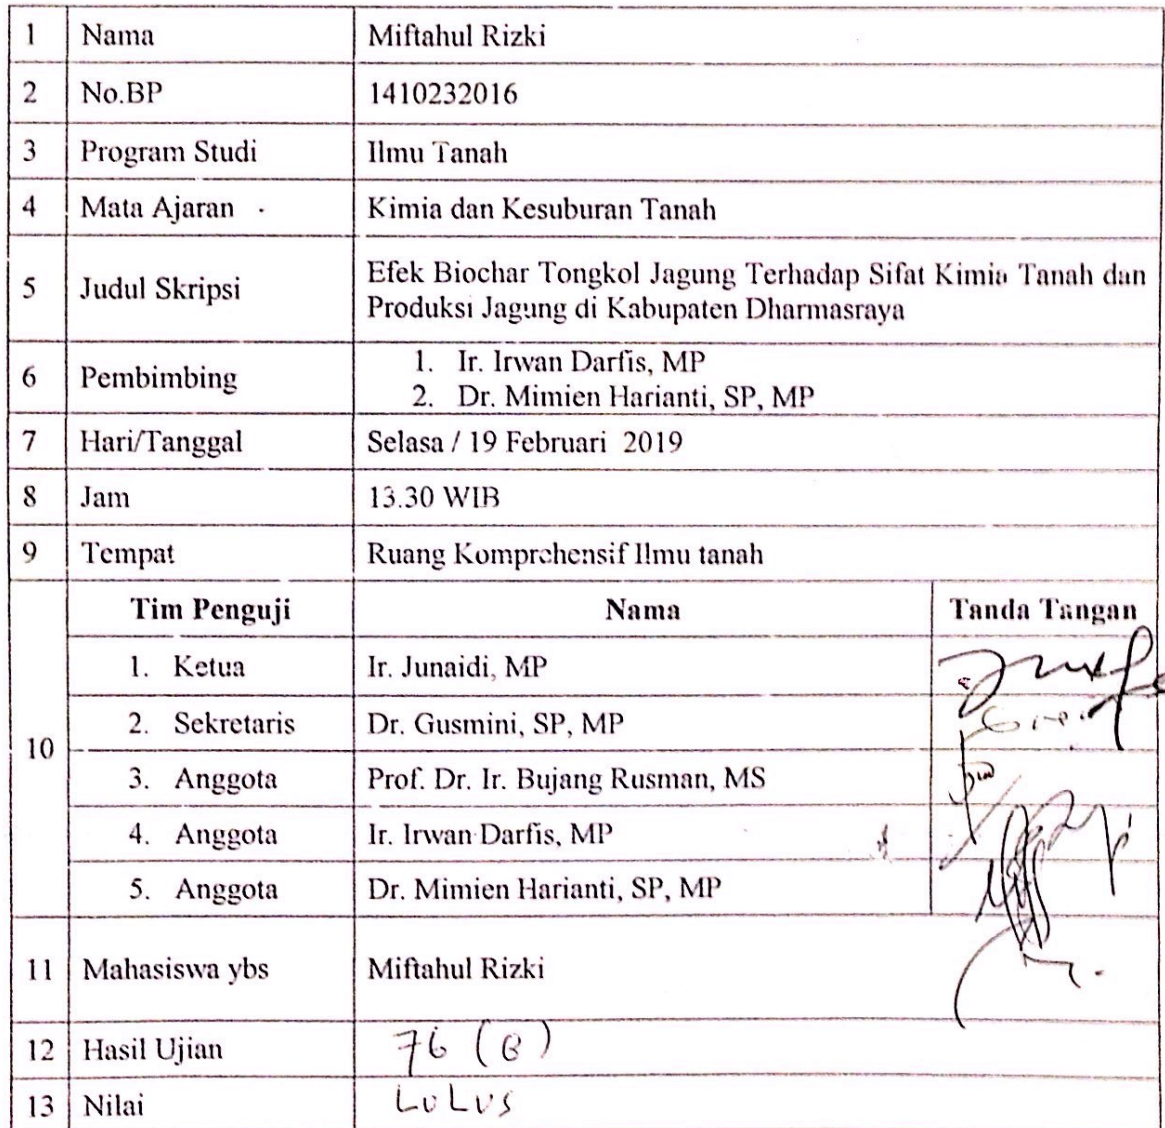 1 Nama Miftahul Rizki
2 No.BP 1410232016
3 Program Studi Ilmu Tanah
4 Mata Ajaran Kimia dan Kesuburan Tanah
5 Judul Skripsi Efek Biochar Tongkol Jagung Terhadap Sifat Kimia Tanah dan
Produksi Jagung di Kabupaten Dharmasraya
6 Pembimbing 1. Ir. Irwan Darfis, MP
2. Dr. Mimien Harianti, SP, MP
7 Hari/Tanggal Selasa / 19 Februari 2019
8 Jam 13.30 WIB
9 Tempat Ruang Komprehensif Ilmu tanah
10 Tim Penguji Nama Tanda Tangan
1. Ketua Ir. Junaidi, MP
2. Sekretaris Dr. Gusmini, SP, MP
3. Anggota Prof. Dr. Ir. Bujang Rusman, MS
4. Anggota Ir. Irwan Darfis, MP
5. Anggota Dr. Mimien Harianti, SP, MP
11 Mahasiswa ybs Miftahul Rizki
12 Hasil Ujian 76 (B)
13 Nilai LULUS